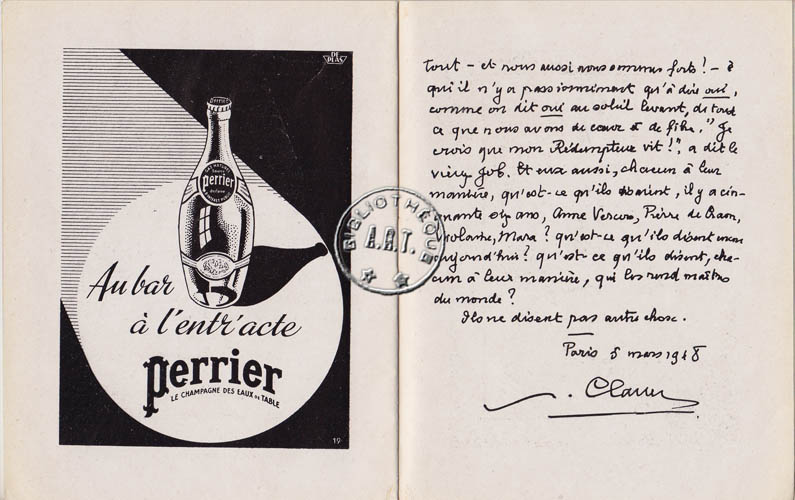 DE PLAS
Perrier
Source
Perrier
Au bar
à l'entr'acte
Perrier
LE CHAMPAGNE DES EAUX DE TABLE
19
tout – et nous aussi nous sommes forts ! – à
qui il n'y a passionnément qu'à dire oui,
comme on dit oui au soleil levant, de tout
ce que nous avons de cœur et de fibre. "Je
crois que mon Rédempteur vit !", a dit le
vieux Job. Et eux aussi, chacun à leur
manière, qu'est-ce qu'ils disaient, il y a cin-
quante six ans, Anne Vercors, Pierre de Craon,
Violaine, Mara ? qu'est-ce qu'ils disent encore
aujourd'hui ? qu'est-ce qu'ils disent, cha-
cun à leur manière, qui les rend maîtres
du monde ?
Ils ne disent pas autre chose.
Paris 5 mars 1948
P. Claudel
BIBLIOTHÈQUE
A.R.T.